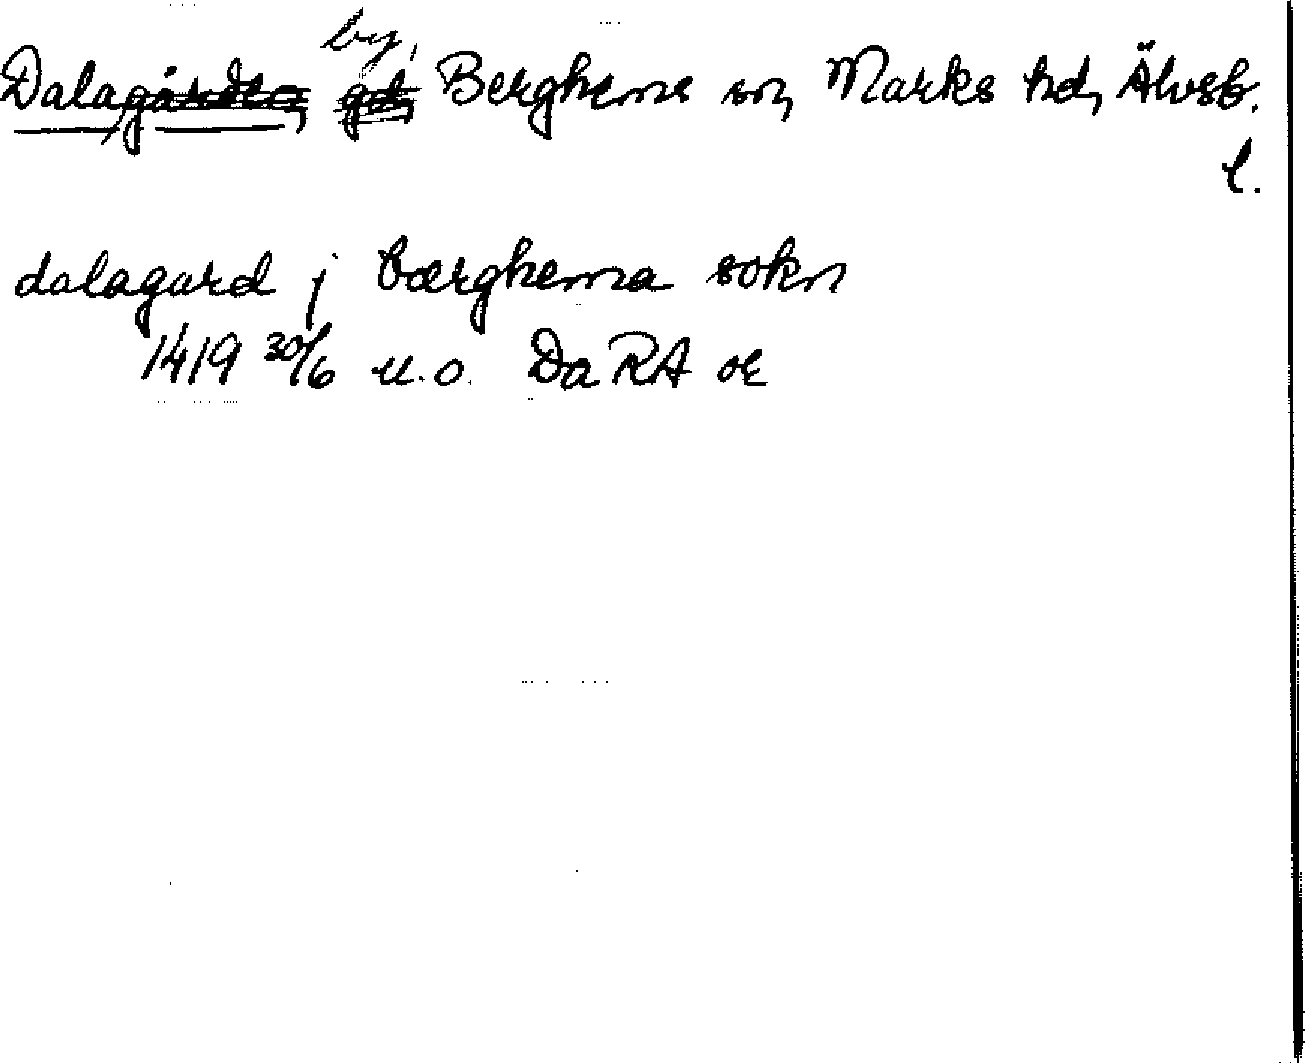 by,
Dalagården, gd, Berghems sn, Marks hd, Älvsb.
l.
dalagard j bærghema sokn
1419 30/6 u.o. Da RA or